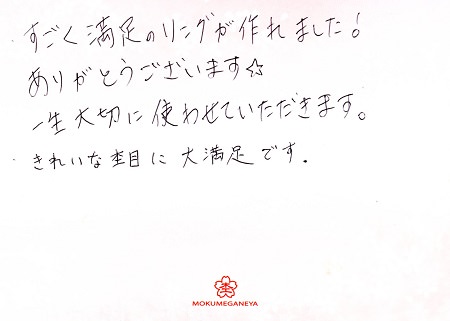 ・すごく満足のリングが作れました!
ありがとうございます☆
一生大切に使わせていただきます。
・きれいな杢目に大満足です.
杢
MOKUMEGANEYA